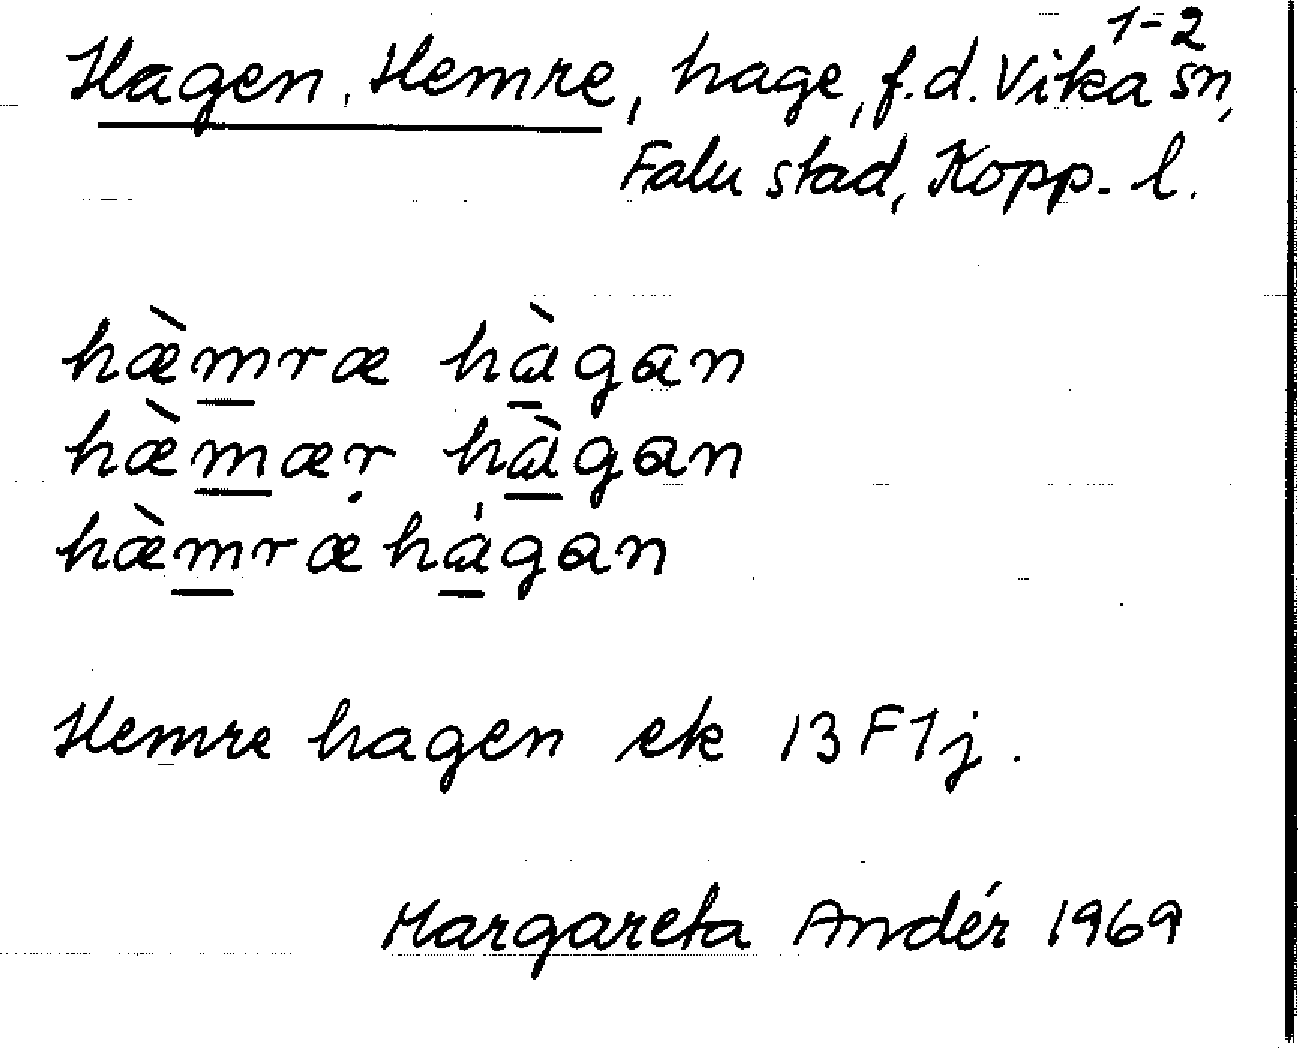 1-2
Hagen, Hemre, hage, f.d. Vika sn,
Falu stad, Kopp. l.
hæ̀m̲ræ hà̲gan
hæ̀m̲æṛ hà̲gan
hæ̀m̲ræ há̲gan
Hemre hagen ek 13 F 1 j.
Margareta Andér 1969